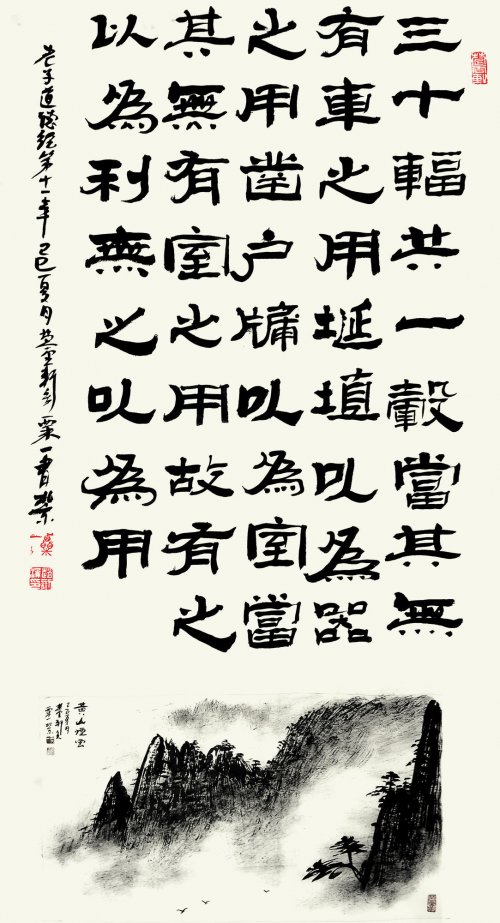 三十輻共一轂當其無
有車之用埏埴以為器
之用凿户牖以為室當
其無有室之用故有之
以為利無之以為用
老子道德經第十一章己巳夏月
黄山烟雲